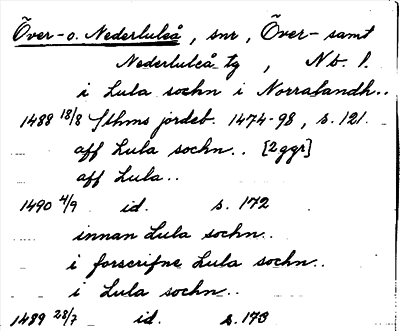 Över- o. Nederluleå, snr, Över- samt
Nederluleå tg, Nb. l.
i Lula sochn i Norrabandh..
1488 18/8 Sthms jordeb. 1474-98, s. 121.
aff Lula sochn.. [2ggr]
aff Lula..
1490 4/9 id. s. 172
innan Lula sochn..
i forscrifne Lula sochn..
i Lula sochn..
1489 28/7 id. s. 173